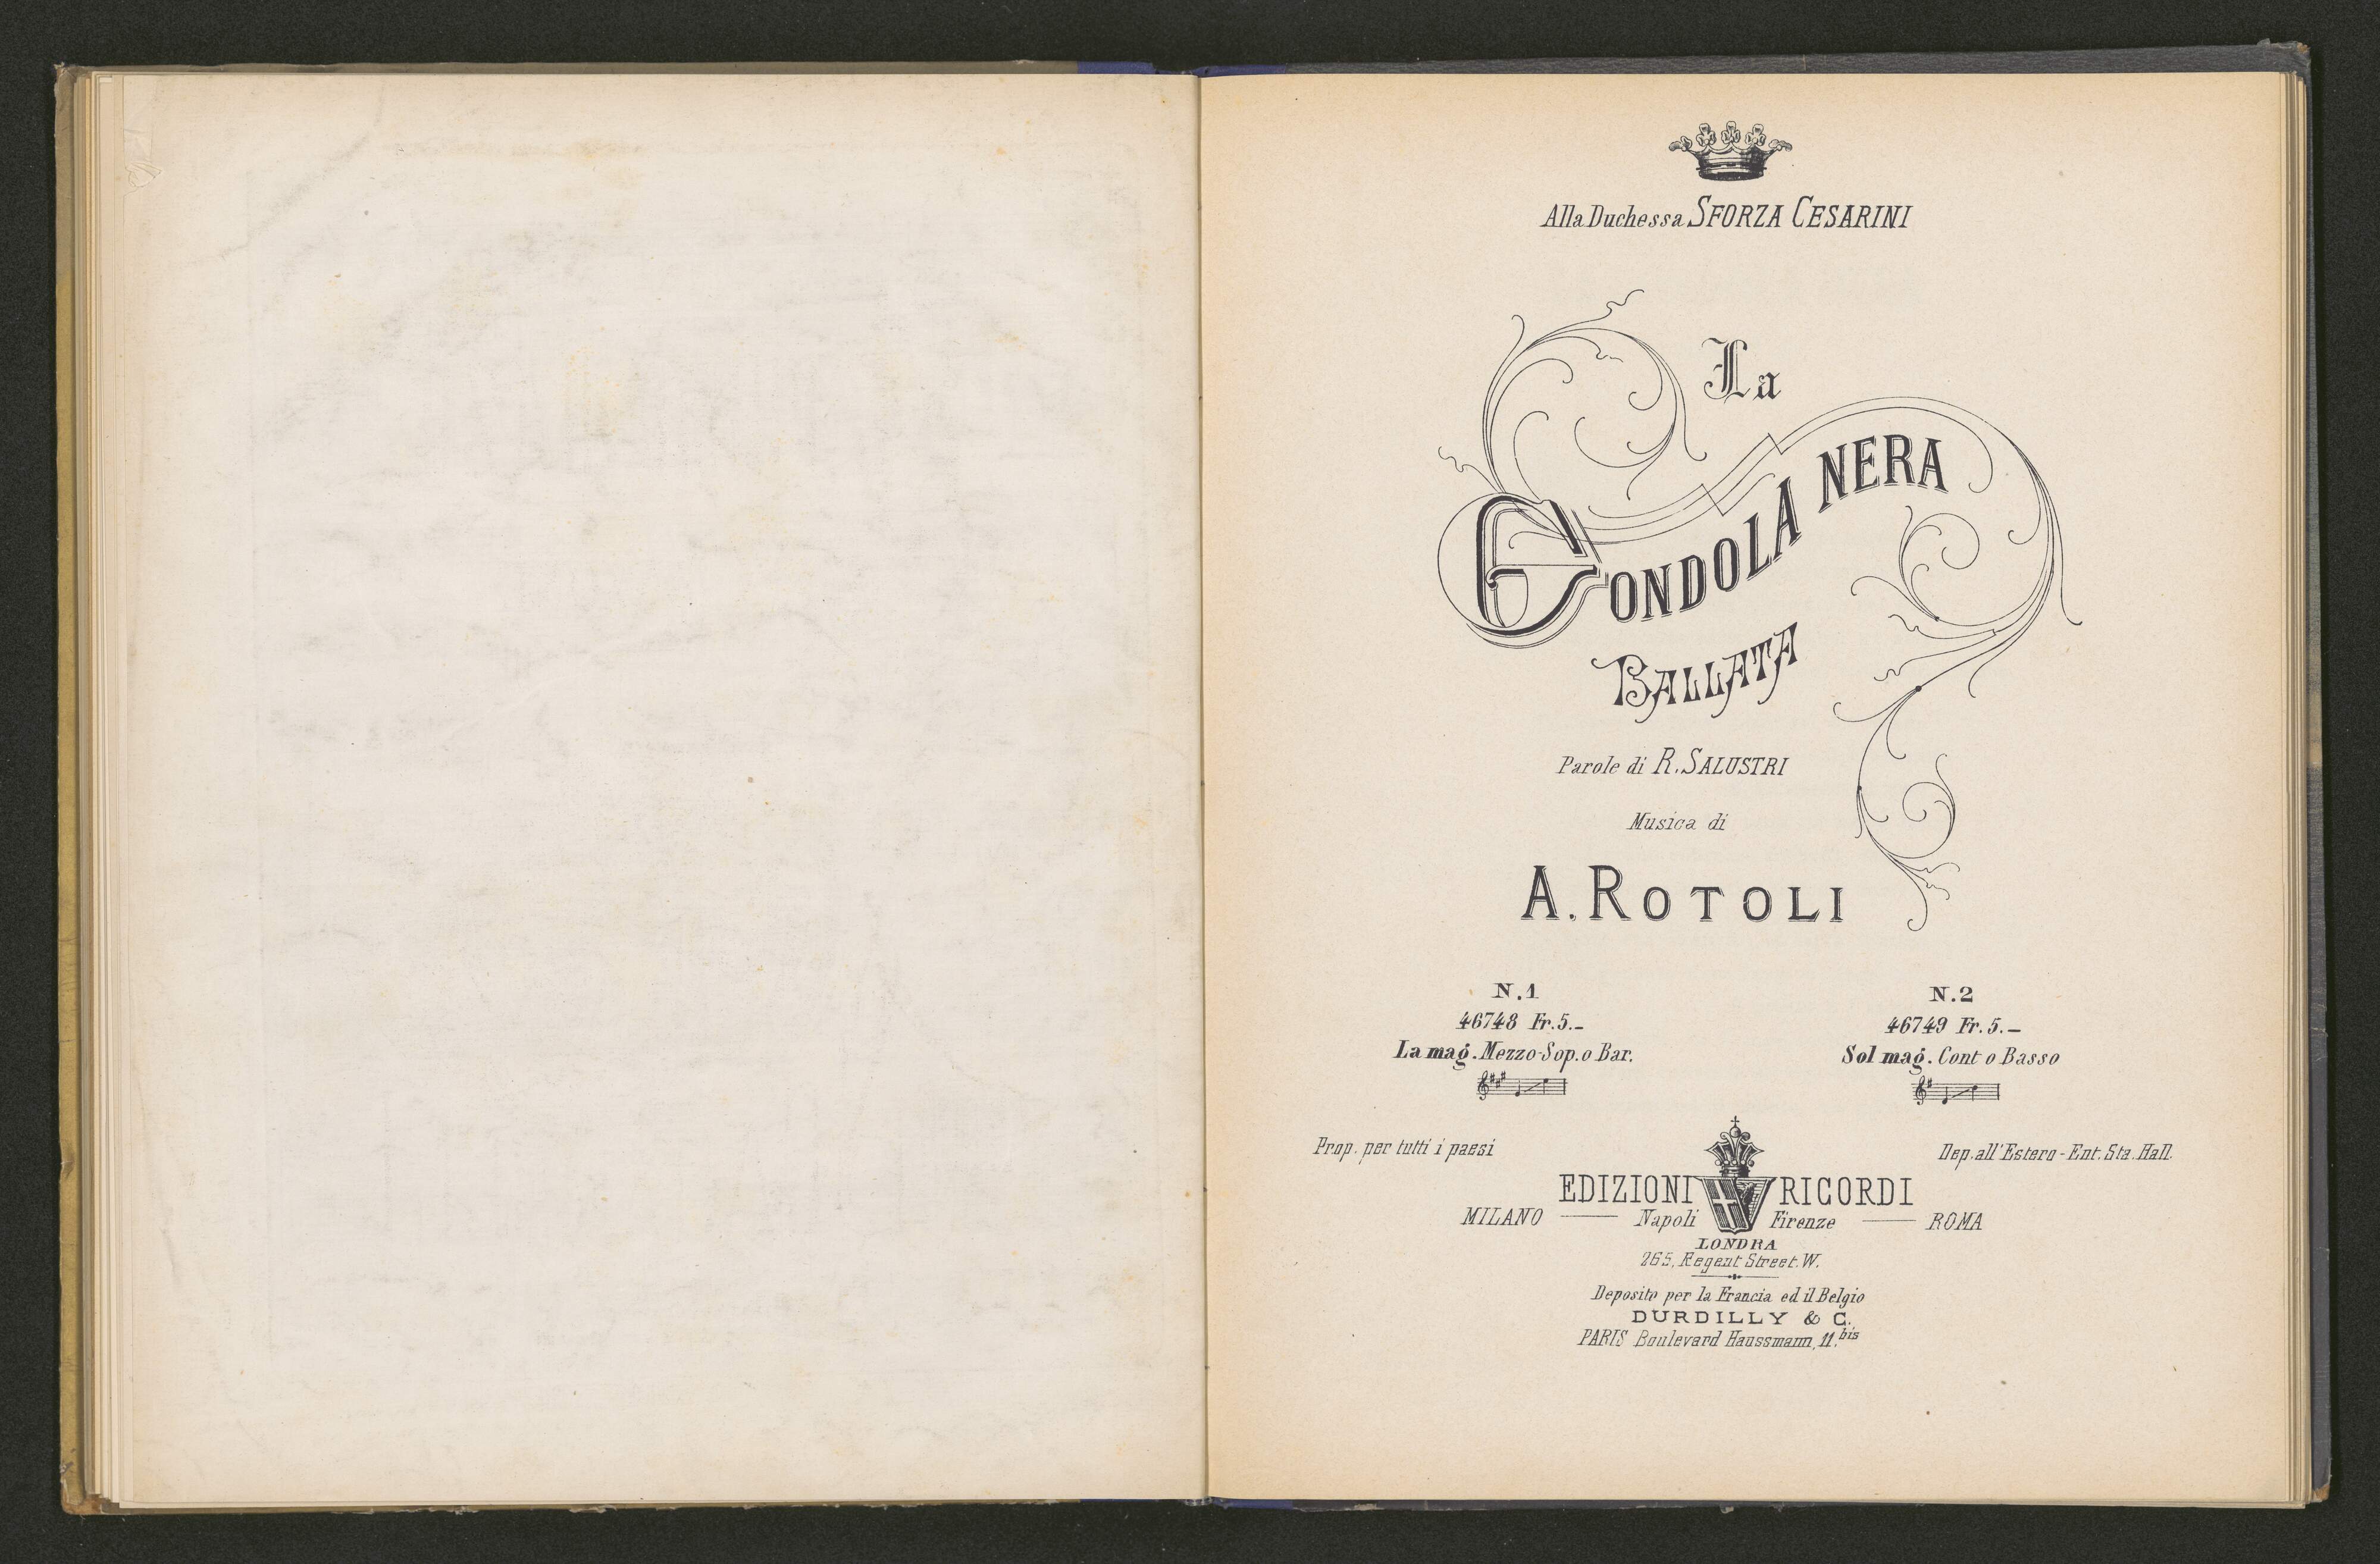 Alla Duchessa SFORZA CESARINI
La
GONDOLA NERA
BALLATA
Parole di R. SALUSTRI
Musica di
A. ROTOLI
N.1
46748 Fr. 5.–
La mag. Mezzo-Sop. o Bar.
N.2
46749 Fr. 5.–
Sol mag. Cont o Basso
Prop. per tutti i paesi
Dep. all'Estero - Ent. Sta. Hall.
EDIZIONI RICORDI
MILANO — Napoli Firenze — ROMA
LONDRA
265, Regent Street. W.
Deposito per la Francia ed il Belgio
DURDILLY & C.
PARIS Boulevard Haussmann, 11.bis